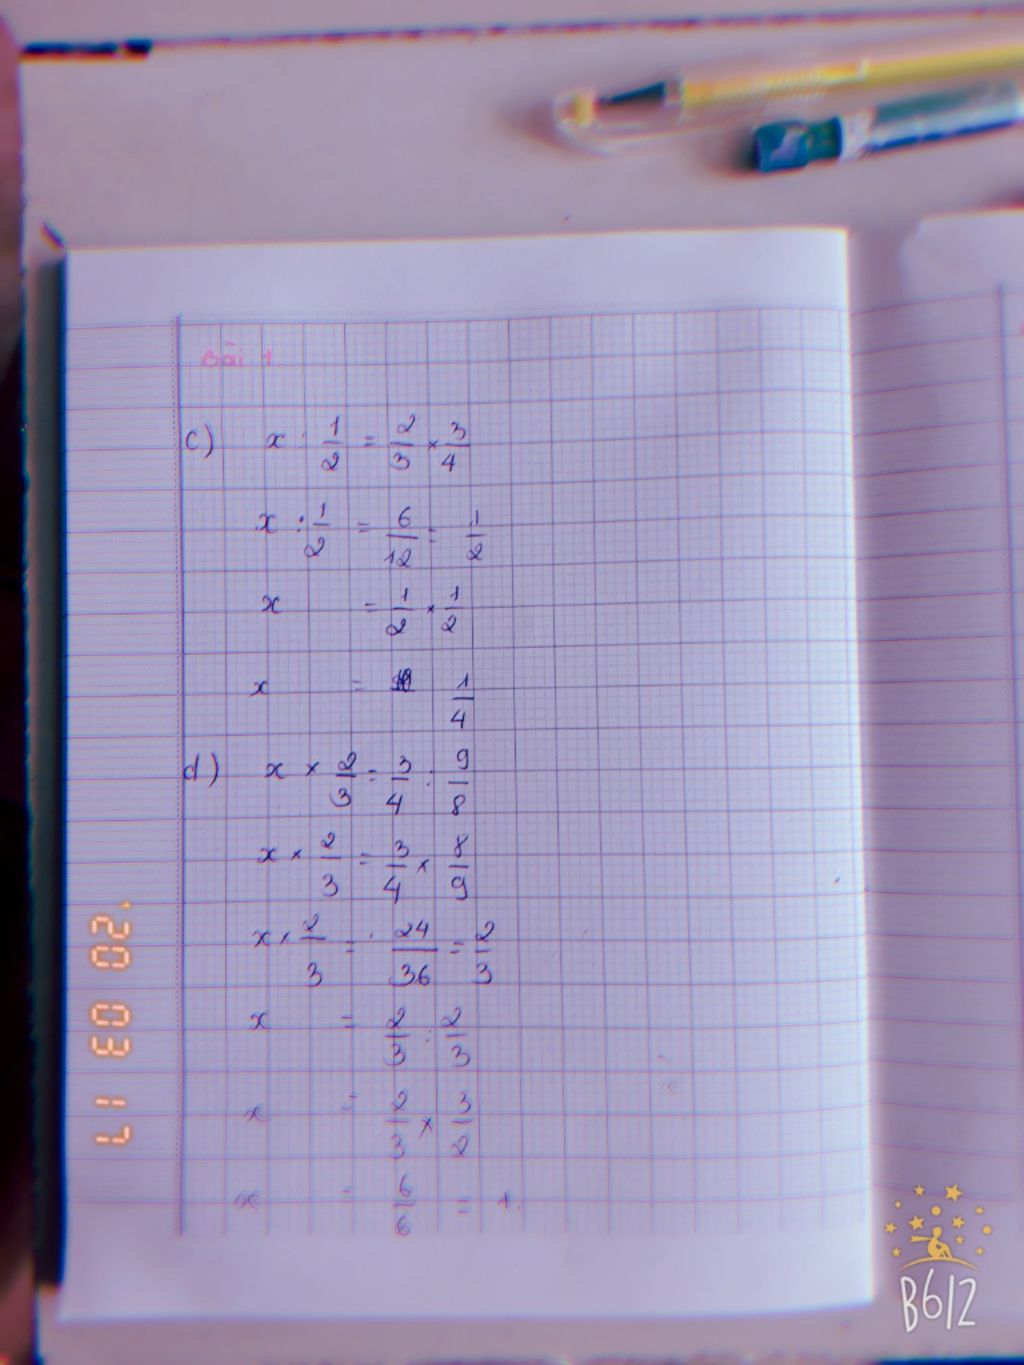 Bài 1
c) x : 1/2 = 2/3 × 3/4
x : 1/2 = 6/12 = 1/2
x = 1/2 × 1/2
x = 1/4
d) x × 2/3 = 3/4 : 9/8
x × 2/3 = 3/4 × 8/9
x × 2/3 = 24/36 = 2/3
x = 2/3 : 2/3
x = 2/3 × 3/2
x = 6/6 = 1.
17 03 '20
B612